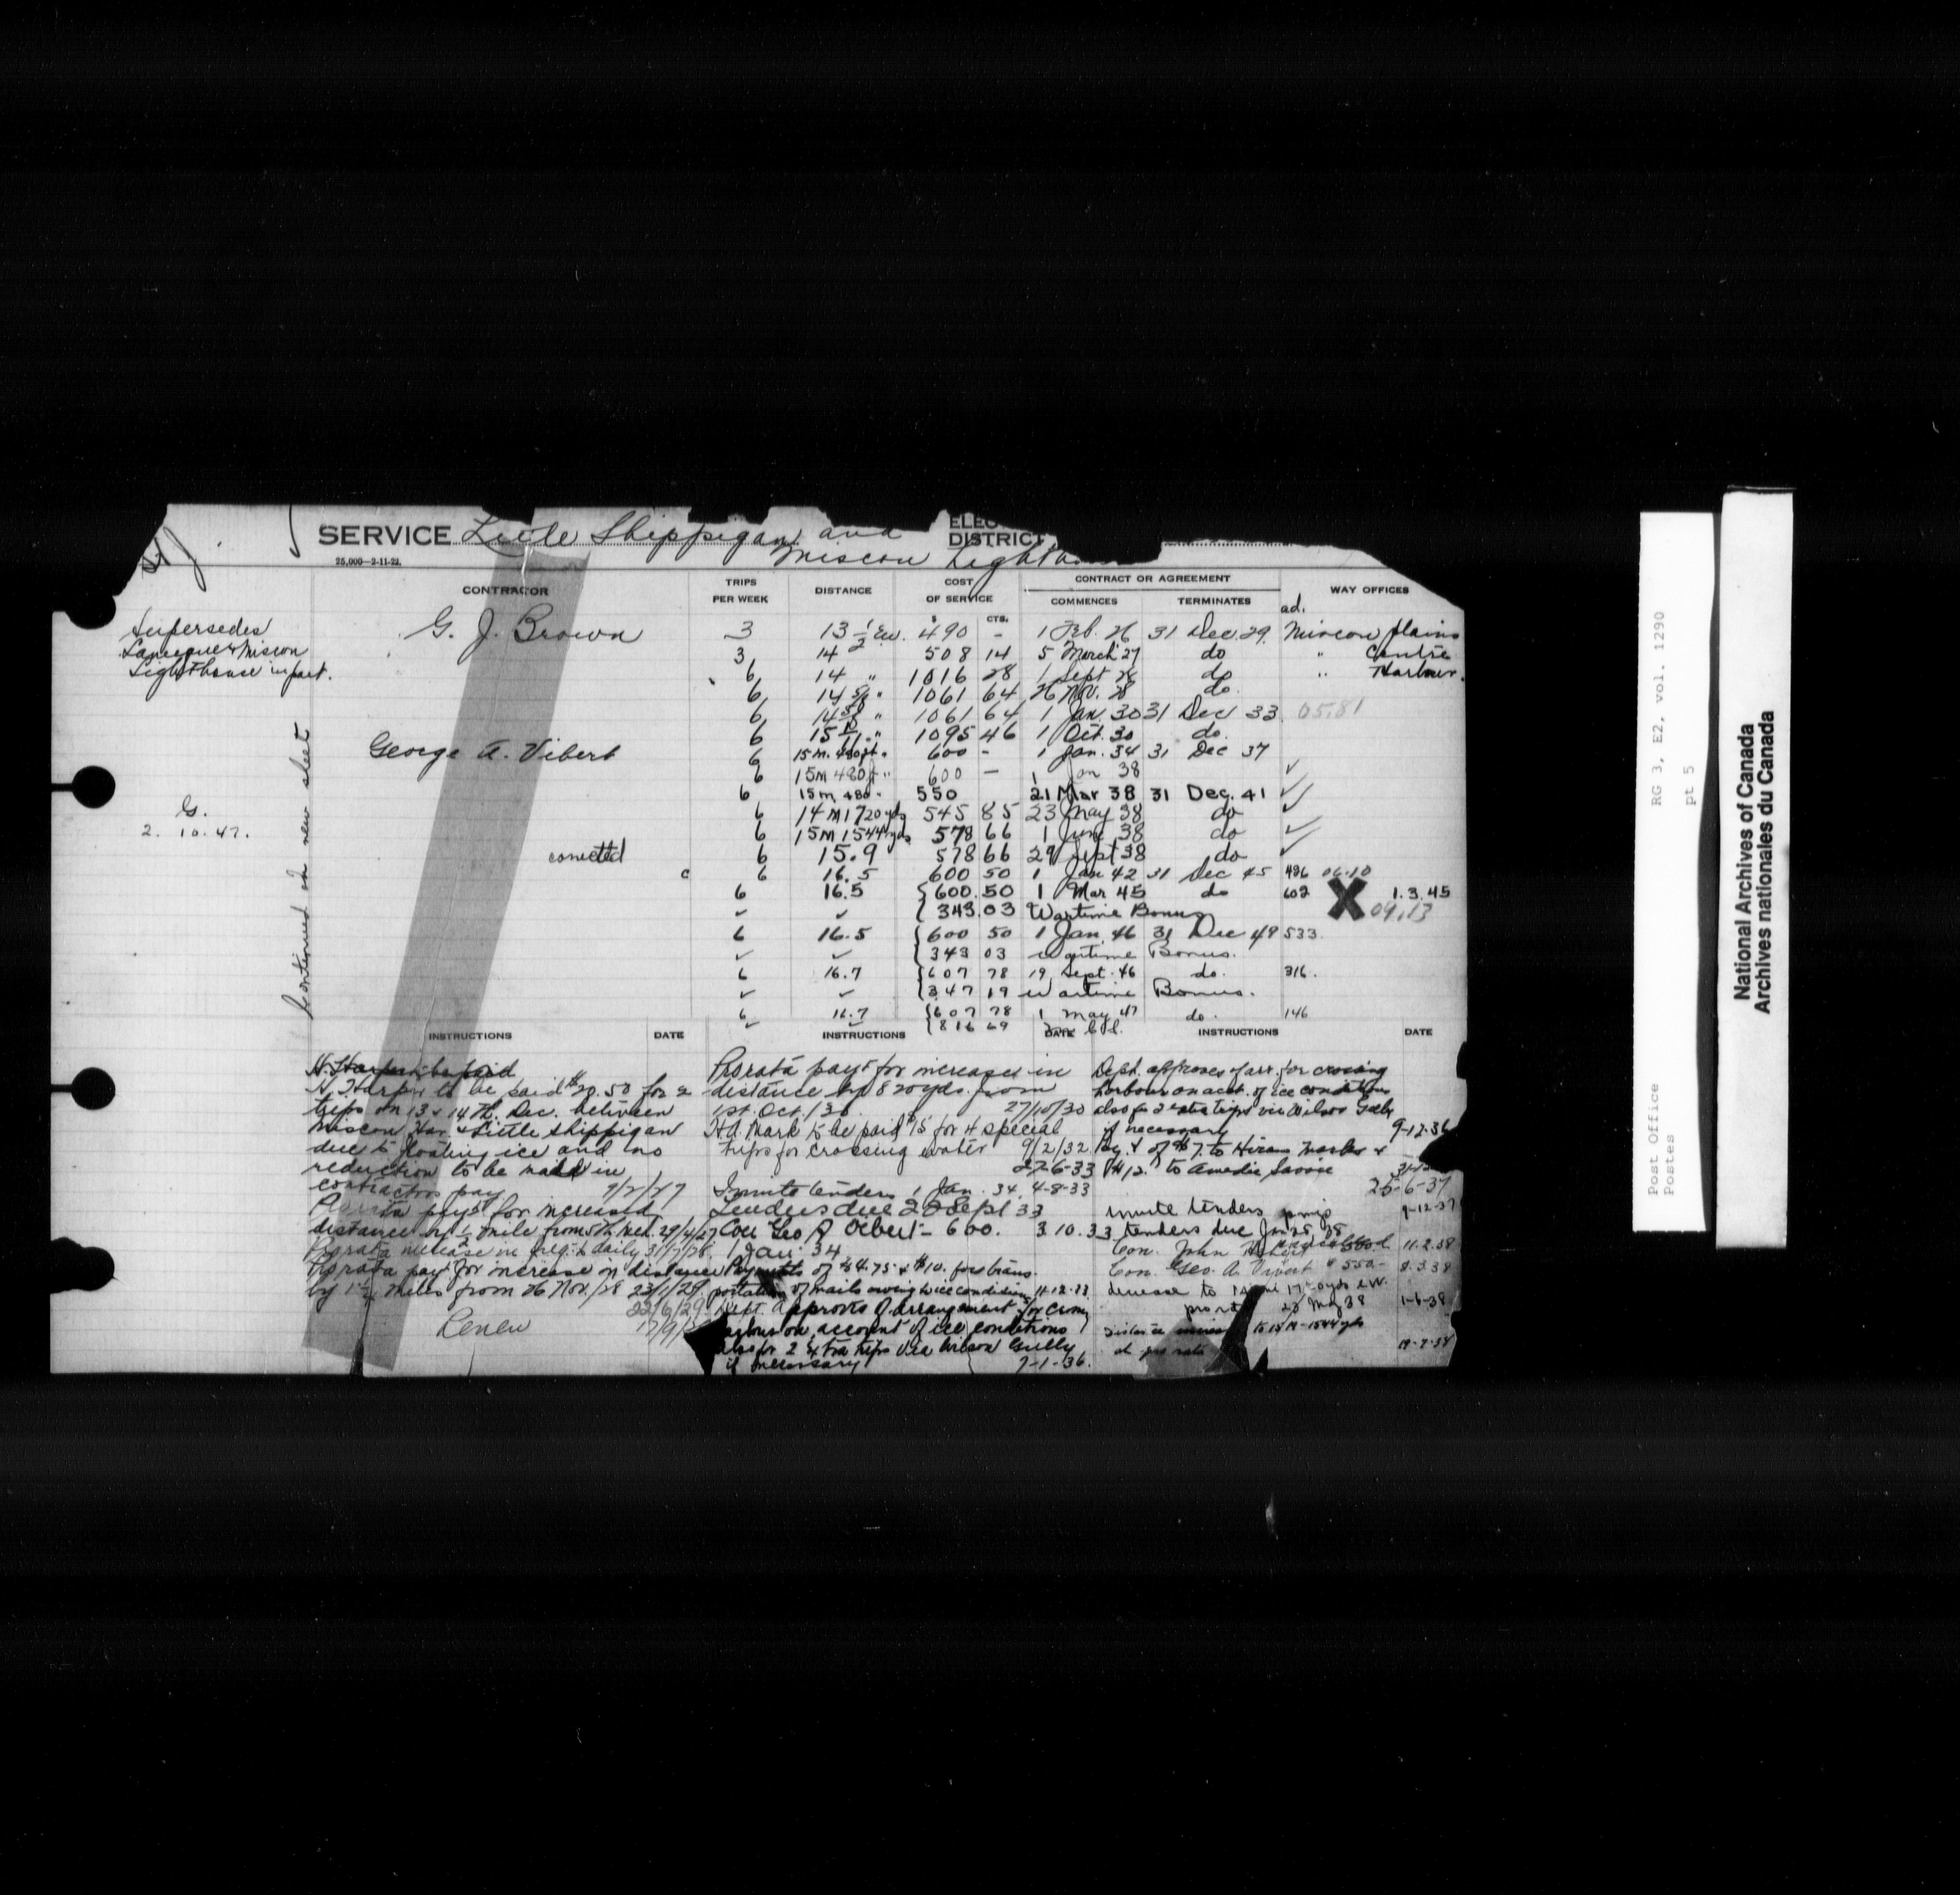 SERVICE Little Shippigan and
Miscou
ELEC
DISTRICT
25,000—2-11-22.
CONTRACTOR
TRIPS PER WEEK
DISTANCE
COST OF SERVICE
CONTRACT OR AGREEMENT
COMMENCES
TERMINATES
WAY OFFICES
$ CTS.
ad.
Supersedes
Lameque & Miscou
Lighthouse in part.
G. J. Brown
3 13 1/2 490 - 1 Feb. 26 31 Dec. 29. Miscou Plains
3 14 508 14 5 March 27 do " Centre
6 14 " 1016 28 1 Sept 28 do " Harbour.
6 14 " 1061 64 26 Nov. 28 do.
6 14 " 1061 64 1 Jan. 30 31 Dec 33 05.81
6 15 " 1095 46 1 Oct. 30 do.
George A. Vibert
6 15 m. 480 ft. " 600 - 1 Jan. 34 31 Dec 37
6 15 m 480 ft " 600 — 1 Jan 38 ✓
6 15 m 480 " 550 21 Mar 38 31 Dec. 41 ✓
6 14 M 1720 yds 545 85 23 May 38 do ✓
6 15 M 1544 yds 578 66 1 June 38 do ✓
corrected 6 15.9 578 66 29 Sept 38 do ✓
c 6 16.5 600 50 1 Jan 42 31 Dec 45 426 06.10
6 16.5 600.50 1 Mar 45 do 602 X 1.3.45
✓ ✓ 343.03 Wartime Bonus 09.13
6 16.5 600 50 1 Jan. 46 31 Dec 49 533.
✓ ✓ 343 03 Wartime Bonus.
6 16.7 607 78 19 Sept. 46 do. 316.
✓ ✓ 347 19 Wartime Bonus.
6 16.7 607 78 1 May 47 do. 146
✓ ✓ 816 69
G.
2. 10. 47.
Continued on new sheet
INSTRUCTIONS DATE
H. Harper to be paid
H. Harper to be paid $20.50 for 2
trips on 13 & 14th. Dec. between
Miscou Har. & Little Shippigan
due to floating ice and no
reduction to be made in
contractors pay 9/2/27
Prorata payt for increased
distance of 1/2 mile from 5th Mch. 29/4/27
Prorata increase in freq. to daily 31/7/28.
Prorata payt for increase in distance
by miles from 26 Nov./28 23/1/29.
22/6/29
Renew
INSTRUCTIONS DATE
Prorata payt for increase in
distance by 820 yds. from
1st. Oct. /30 27/10/30
H.A. Mark to be paid $15 for 4 special
trips for crossing water 9/2/32
27-6-33
Invite tenders 1 Jan. 34. 4-8-33
Tenders due 20 Sept 33
Con Geo A Vibert - 600. 3.10.33
1 Jan 34
Payments of $4.75 & $10. for trans-
portation of mails owing to ice conditions 11-12-33
Dept. approves of arrangement for crossing
harbour on account of ice conditions
also for 2 extra trips via Wilson Gully
if necessary 7-1-36.
INSTRUCTIONS DATE
Dept. approves of arr. for crossing
harbour on acct. of ice conditions
also for 2 extra trips via Wilson Gully
if necessary 9-12-36
Pay't of $7. to Hiram Marks &
$12. to Amedie Savoie
25-6-37
invite tenders 9-12-37
tenders due Jan 28 38
Con. John cancelled 11.2.38
Con. Geo. A. Vibert $550- 8.3.38
decrease to
pro rata 23 May 38 1-6-38
distance to 15 M - 1544 yds
at pro rata 19-7-38
Post Office RG 3, E2, vol. 1290
Postes pt 5
National Archives of Canada
Archives nationales du Canada